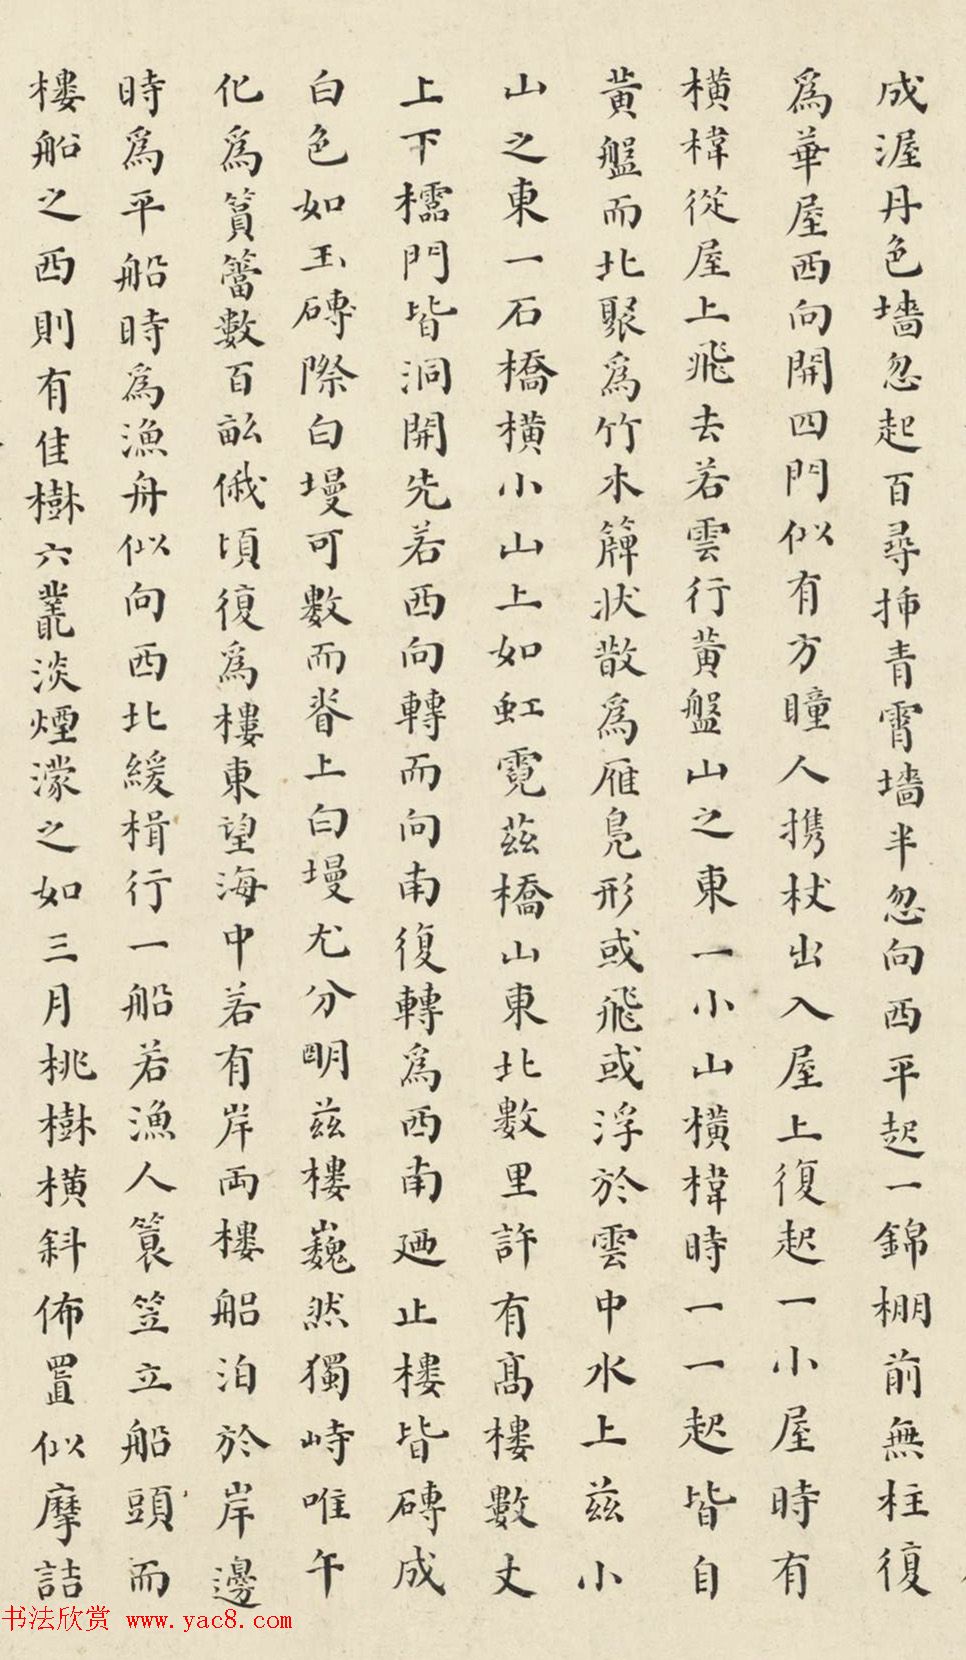 成渥丹色墻忽起百尋揷青霄墻半忽向西平起一錦棚前無柱復
為華屋西向開四門似有方瞳人携杖出入屋上復起一小屋時有
橫樟從屋上飛去若雲行黃盤山之東一小山橫樟時一一起皆自
黃盤而北聚為竹木簰狀散為雁鳧形或飛或浮於雲中水上茲小
山之東一石橋橫小山上如虹霓茲橋山東北數里許有高樓數丈
上下櫺門皆洞開先若西向轉而向南復轉為西南廼止樓皆磚成
白色如玉磚際白墁可數而脊上白墁尤分明茲樓巍然獨峙唯午
化為篔簹數百畝俄頃復為樓東望海中若有岸兩樓船泊於岸邊
時為平船時為漁舟似向西北緩楫行一船若漁人簑笠立船頭而
樓船之西則有佳樹六叢淡煙濛之如三月桃樹橫斜佈置似摩詰
书法欣赏 www.yac8.com